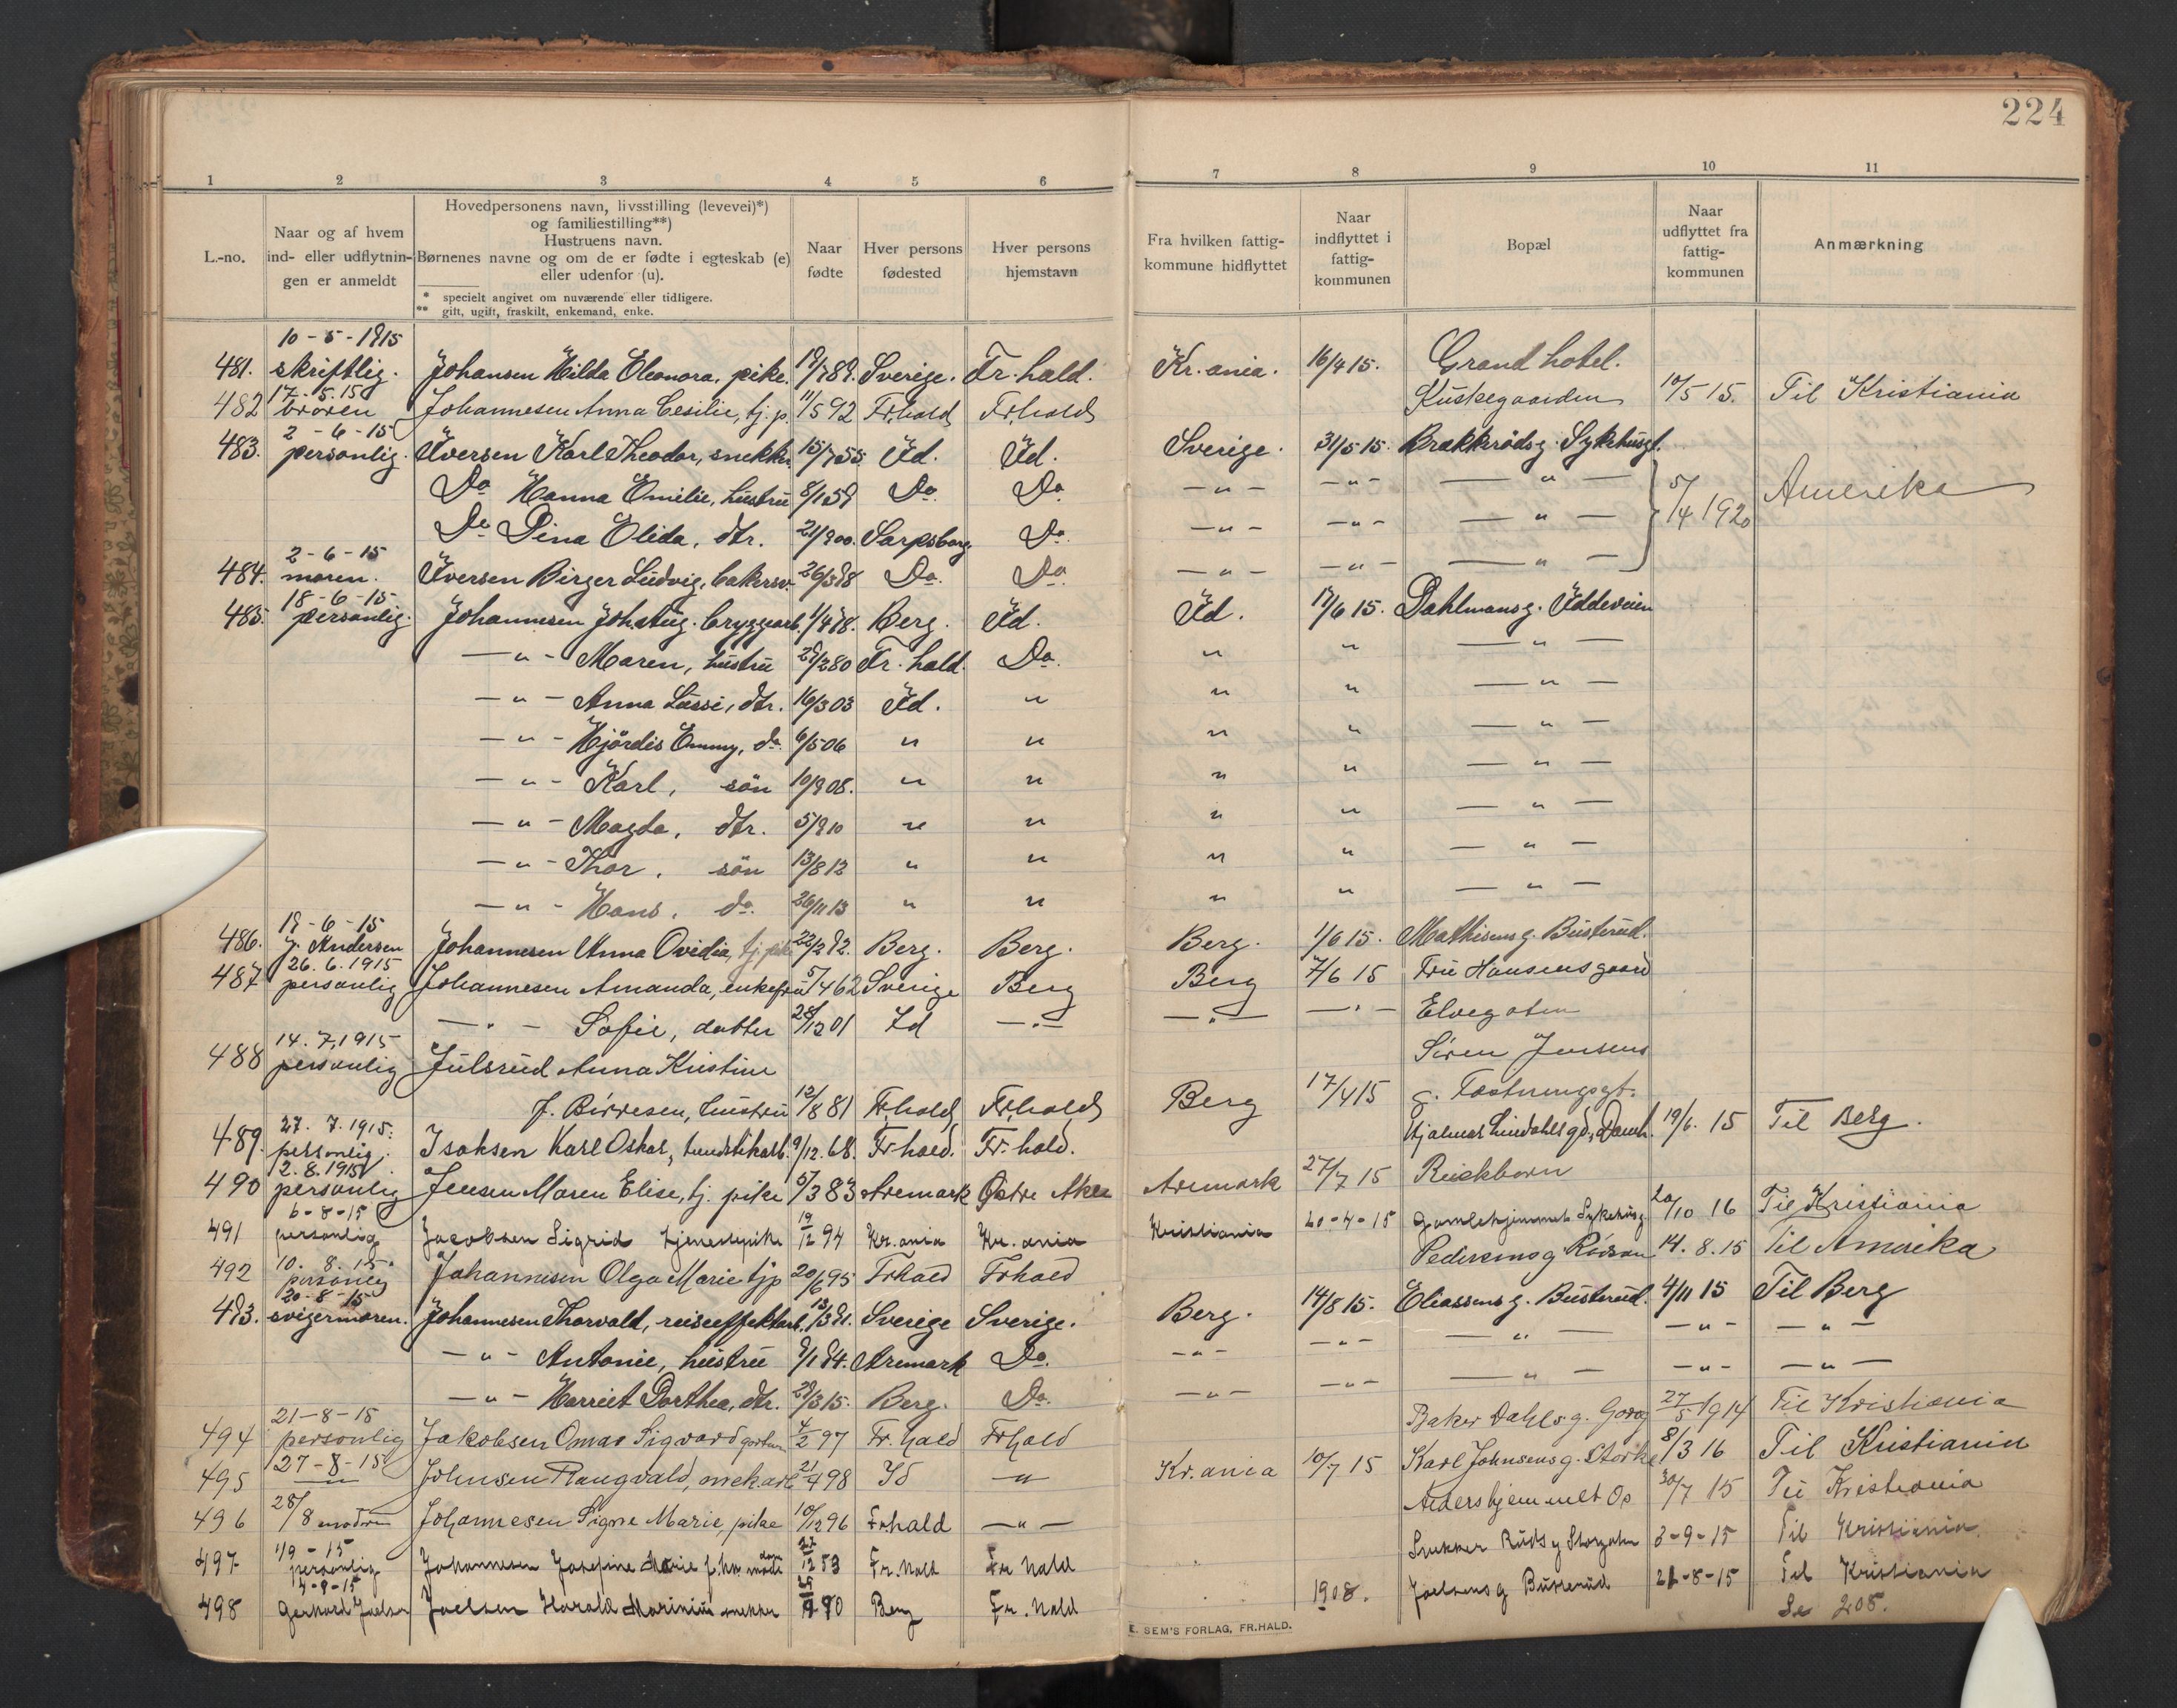 224
1 2 3 4 5 6 7 8 9 10 11
L.-no.
Naar og af hvem
ind- eller udflytnin-
gen er anmeldt
Hovedpersonens navn, livsstilling (levevei)*)
og familiestilling**)
Hustruens navn.
Børnenes navne og om de er fødte i egteskab (e)
eller udenfor (u).
* specielt angivet om nuværende eller tidligere.
** gift, ugift, fraskilt, enkemand, enke.
Naar
fødte
Hver persons
fødested
Hver persons
hjemstavn
Fra hvilken fattig-
kommune hidflyttet
Naar
indflyttet i
fattig-
kommunen
Bopæl
Naar
udflyttet fra
fattig-
kommunen
Anmærkning
10-5-1915
481. skriftlig. Johansen Hilda Eleonora, pike. 19/7 89. Sverige. Fr.hald. Kr.ania. 16/4 15. Grand hotel.
17.5.15
482 broren Johannesen Anna Cesilie, tj. p. 11/5 92 Frhald Frhald Kuskegaarden 10/5 15. Til Kristiania
2-6-15
483. personlig. Iversen Karl Theodor, snekker 15/7 55. Id. Id. Sverige. 31/5 15. Brækkerødsg. Sykehusgt.
Do Hanna Emilie, hustru 8/1 59 Do. Do. -"- -"- -"- 5/4 1920 Amerika
Do Dina Elida, dtr. 21/9 00. Sarpsborg. Do. -"- -"- -"-
2-6-15
484. moren. Iversen Birger Ludvig, bakersv. 26/3 98 Do. Do. -"- -"- -"-
18-6-15
485. personlig. Johannesen Joh. Aug. bryggearb. 1/4 78. Berg. Id. Id. 17/6 15. Dahlmansg. Iddeveien
-"- Maren, hustru 29/2 80 Fr.hald. Do. " " -"-
-"- Anna Lussi, dtr. 16/3 03 Id. " " " -"-
-"- Hjørdis Emmy, do. 6/5 06 " " " " -"-
-"- Karl, søn 10/9 08. " " " " -"-
-"- Magda, dtr. 5/9 10 " " " " -"-
-"- Thor, søn 13/8 12 " " " " -"-
-"- Hans, do. 26/11 13 " " " " -"-
19-6-15
486. J. Andersen Johannesen Anna Ovidia, tj. pike 22/2 92. Berg. Berg. Berg. 1/6 15. Mathisensg. Busterud.
26.6.1915
487 personlig Johannesen Amanda, enkefru 5/4 62 Sverige Berg Berg 7/6 15 Fru Hansens gaard
-"- Sofie, datter 28/12 01 Id -"- -"- -"- Elvegaten
14.7.1915
488 personlig Julsrud Anna Kristine Søren Jensens
f. Børresen, hustru 12/8 81 Frhald Frhald Berg 17/4 15 g. Fæstningsgt.
27. 7. 1915.
489. personlig. Isaksen Karl Oskar, 9/12. 68. Frhald. Fr.hald. Hjalmar Lindahls gd, 19/6. 15 Til Berg.
2.8.1915
490 personlig Jensen Maren Elise, tj. pike 5/3 83 Aremark Østre Aker Aremark 27/7 15
6-8-15
491 personlig Jacobsen Sigrid tjenestepike 19/12 94 Kr.ania Kr.ania Kristiania 20-4-15 Gamlehjemmet Sykehusg 20/10 16 Til Kristiania
10. 8. 15.
492 personlig Johannesen Olga Marie tjp 20/6 95 Frhald Frhald Pedersens g Rødsen 14. 8. 15 Til Amerika
20-8-15
493. svigermoren. Johannesen Thorvald, reiseeffektarb. 13/3 91. Sverige Sverige. Berg. 14/8 15. Eliassens g. Busterud. 4/11 15 Til Berg
-"- Antonie, hustru 9/1 94. Aremark Do. -"- -"- -"- -"- -"-
-"- Harriet Dorthea, dtr. 29/3 15. Berg. Do. -"- -"- -"- -"- -"-
21-8-15
494 personlig Jakobsen Omar Sigvard 4/2 97 Fr.hald Frhald Baker Dahls g. 27/5 1914 Til Kristiania
27-8-15
495 -"- Johnsen Raugvald, 21/4 98 Id -"- Kr.ania 10/7 15 Karl Johnsens g. 8/3 16 Til Kristiania
496 28/8 modren Johannesen Signe Marie, pike 10/12 96 Frhald -"- 30/7 15 Til Kristiania
1/9-15
497 personlig Johannesen Josefine Marie 27/12 53 Fr.hald Fr hald Snekker Ruds g 3-9-15 Til Kristiania
14-8-15
498 Gerhard Joelsen Joelsen Harald Marinius snekker Berg Fr.hald 1908. Joelsens g Busterud 21-8-15 Til Kristiania
Se 208.
E. SEM'S FORLAG, FR.HALD.